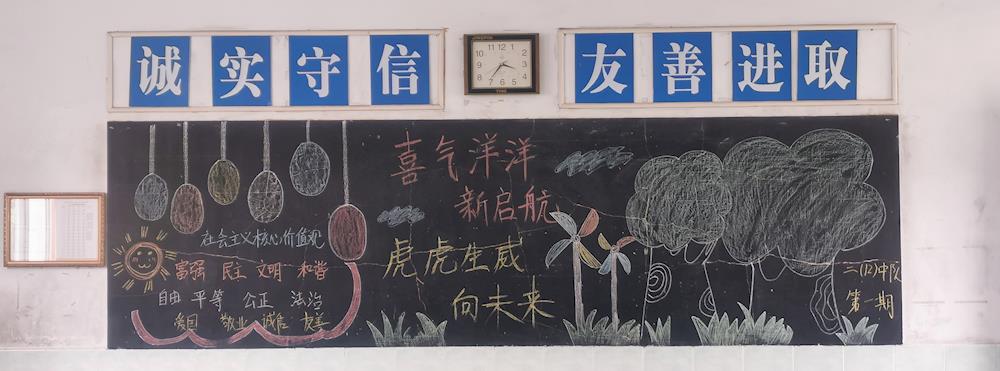 诚实守信
友善进取
11 12 1 2 3 4 5 6 7 8 9 10
喜气洋洋
新启航
虎虎生威
向未来
社会主义核心价值观
富强 民主 文明 和谐
自由 平等 公正 法治
爱国 敬业 诚信 友善
二(12)中队
第一期